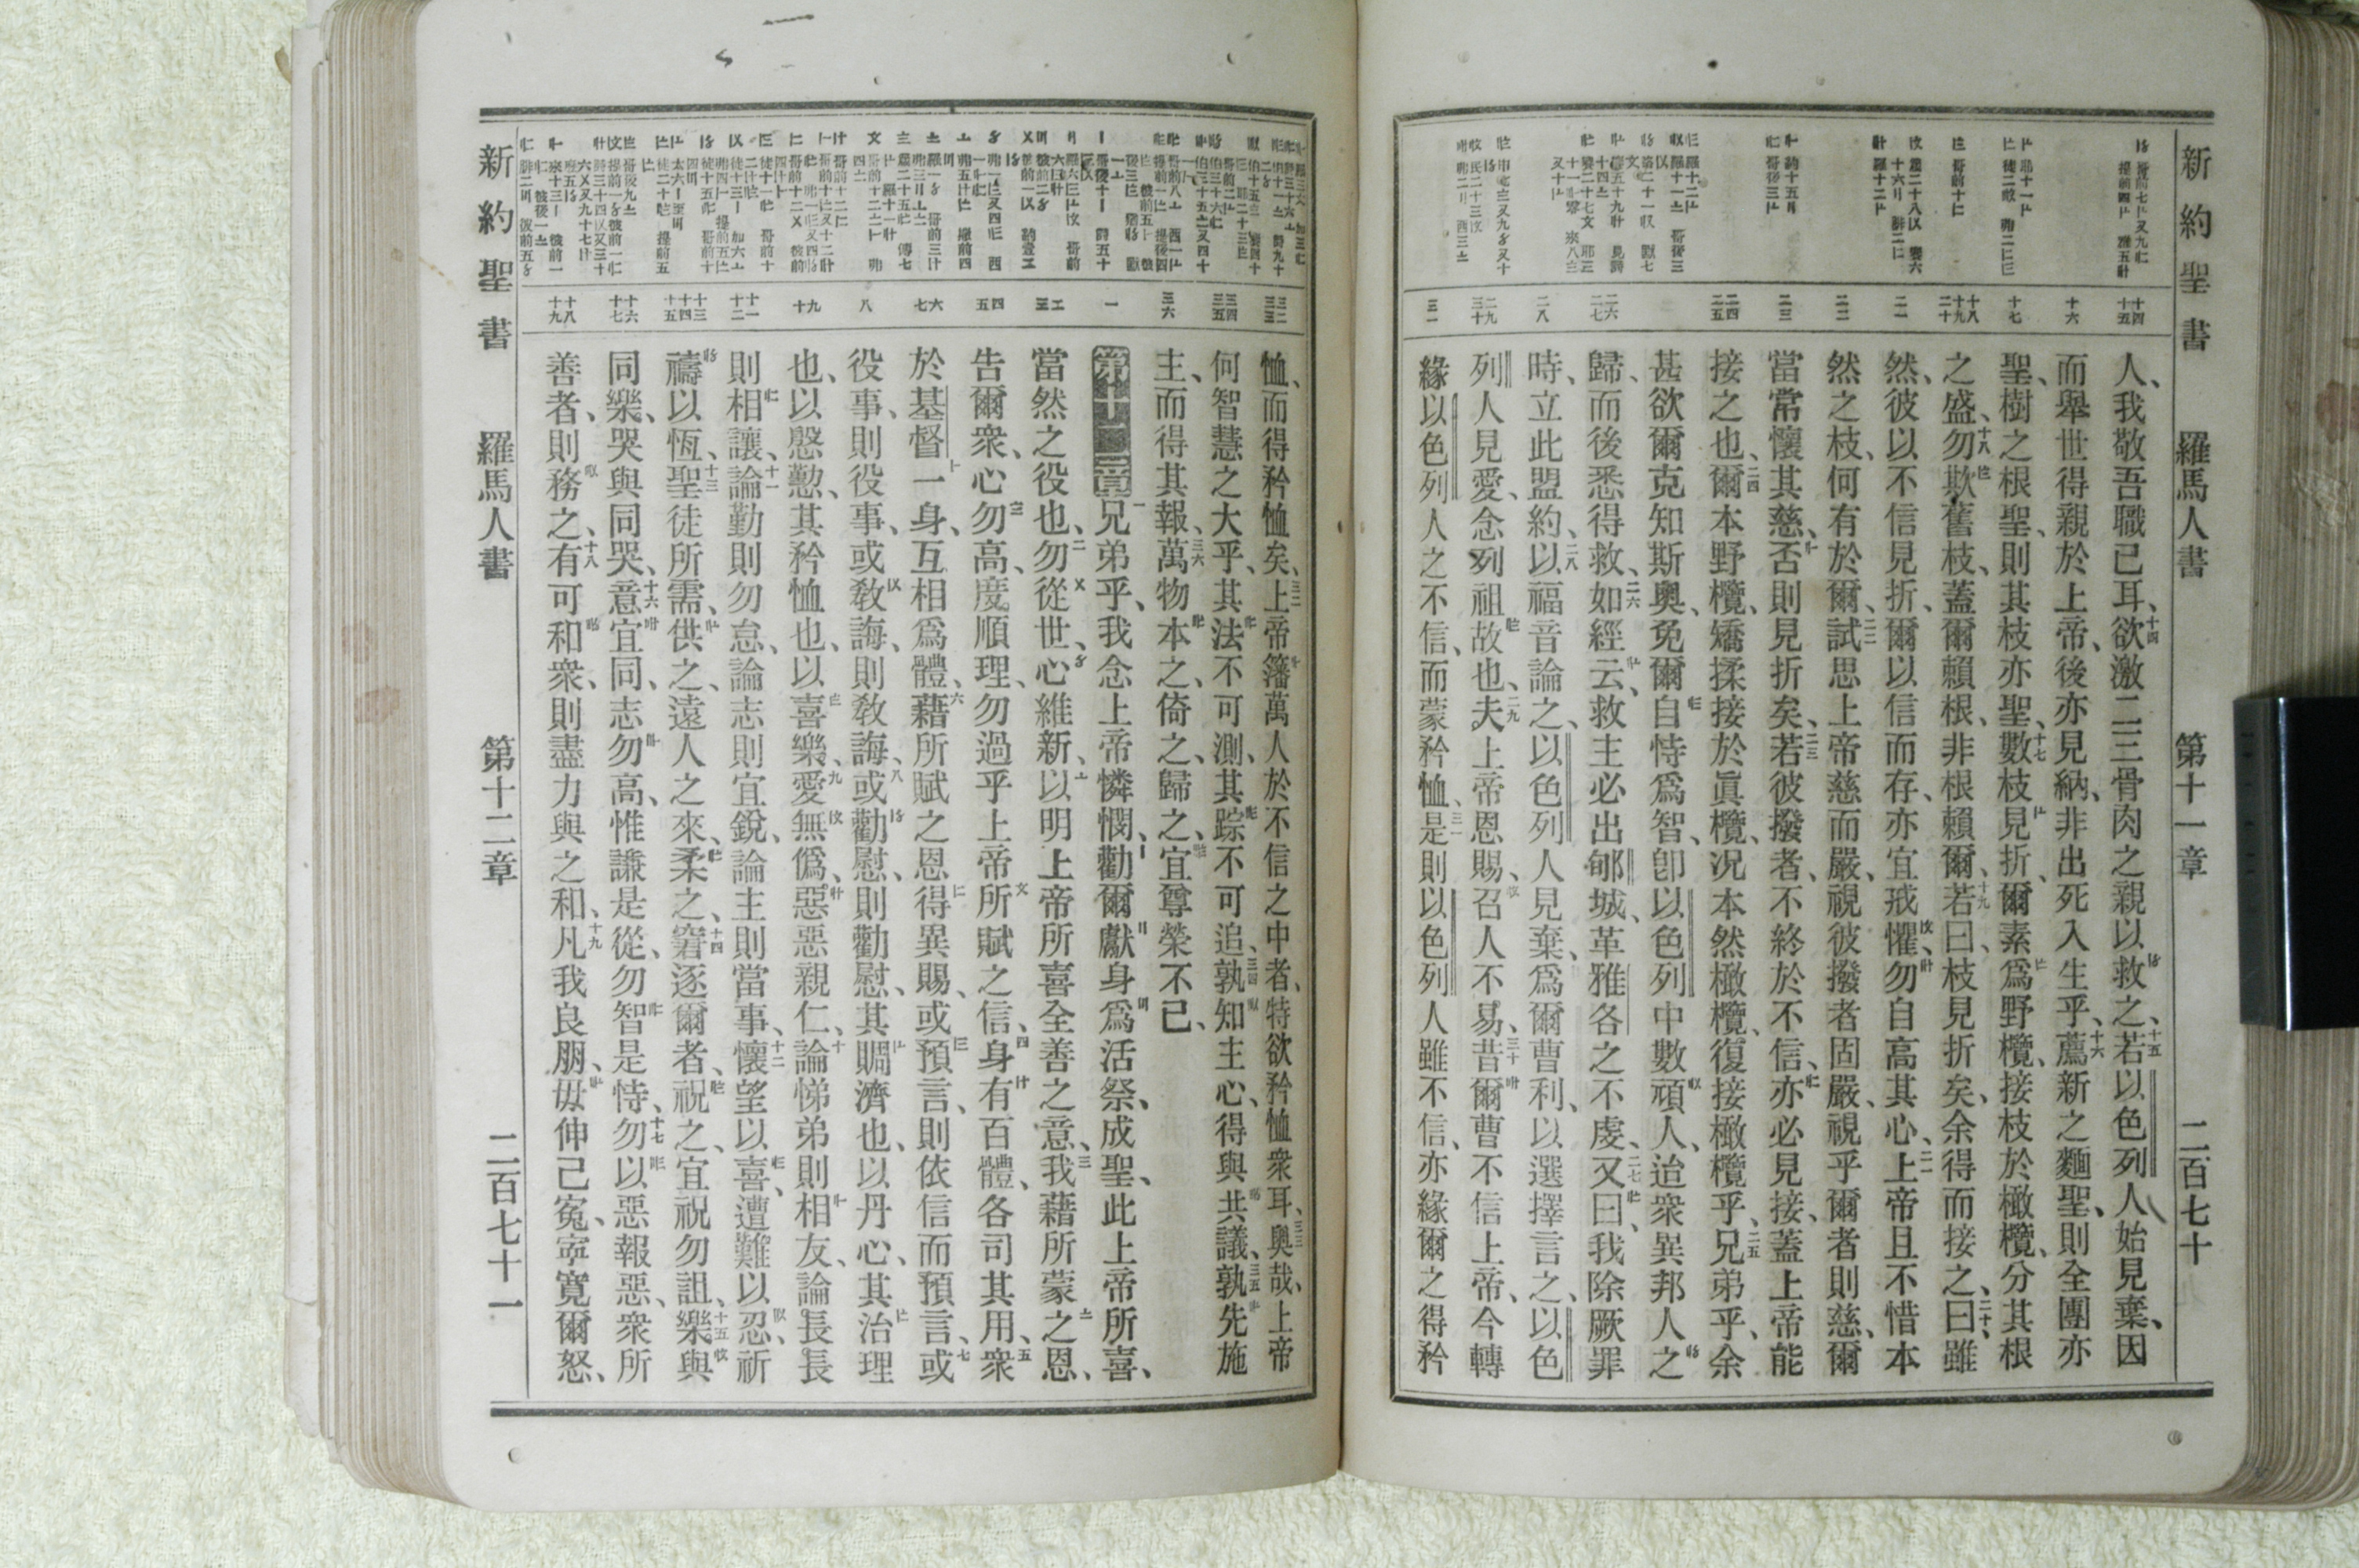 新約聖書 羅馬人書 第十一章 二百七十
十四 十五
十六
十七
十八 十九 二十
二一
二二
二三
二四 二五
二六 二七
二八
二九 三十
三一
人、我敬吾職已耳、十四欲激二三骨肉之親以救之、十五若以色列人始見棄、因
而舉世得親於上帝、後亦見納、非出死入生乎、十六薦新之麵聖、則全團亦
聖、樹之根聖、則其枝亦聖、十七數枝見折、爾素爲野欖、接枝於橄欖、分其根
之盛、十八勿欺舊枝、蓋爾賴根、非根賴爾、十九若曰、枝見折矣、余得而接之、二十曰、雖
然、彼以不信見折、爾以信而存、亦宜戒懼、勿自高其心、二一上帝且不惜本
然之枝、何有於爾、二二試思上帝慈而嚴、視彼撥者固嚴、視乎爾者則慈、爾
當常懷其慈、否則見折矣、二三若彼撥者、不終於不信、亦必見接、蓋上帝能
接之也、二四爾本野欖、矯揉接於眞欖、況本然橄欖、復接橄欖乎、二五兄弟乎、余
甚欲爾克知斯奧、免爾自恃爲智、卽以色列中數頑人、迨衆異邦人之
歸、而後悉得救、二六如經云、救主必出郇城、革雅各之不虔、二七又曰、我除厥罪
時、立此盟約、二八以福音論之、以色列人見棄、爲爾曹利、以選擇言之、以色
列人見愛、念列祖故也、二九夫上帝恩賜、召人不易、三十昔爾曹不信上帝、今轉
緣以色列人之不信、而蒙矜恤、三一是則以色列人雖不信、亦緣爾之得矜
三二 三三
三四 三五
三六
一
二 三
四 五
六 七
八
九 十
十一 十二
十三 十四 十五
十六 十七
十八 十九
恤、而得矜恤矣、三二上帝籓萬人於不信之中者、特欲矜恤衆耳、三三奧哉、上帝
何智慧之大乎、其法不可測、其踪不可追、三四孰知主心、得與共議、三五孰先施
主、而得其報、三六萬物本之、倚之、歸之、宜尊榮不已、
第十二章 一兄弟乎、我念上帝憐憫、勸爾獻身爲活祭、成聖、此上帝所喜、
當然之役也、二勿從世、心維新、以明上帝所喜全善之意、三我藉所蒙之恩、
告爾衆、心勿高、度順理、勿過乎上帝所賦之信、四身有百體、各司其用、五衆
於基督一身、互相爲體、六藉所賦之恩得異賜、或預言、則依信而預言、七或
役事、則役事、或敎誨、則敎誨、八或勸慰、則勸慰、其賙濟也、以丹心、其治理
也、以慇懃、其矜恤也、以喜樂、九愛無僞、惡惡親仁、十論悌弟則相友、論長長
則相讓、十一論勤則勿怠、論志則宜銳、論主則當事、十二懷望以喜、遭難以忍、祈
禱以恆、十三聖徒所需、供之、遠人之來、柔之、十四窘逐爾者、祝之、宜祝勿詛、十五樂與
同樂、哭與同哭、十六意宜同、志勿高、惟謙是從、勿智是恃、十七勿以惡報惡、衆所
善者、則務之、十八有可和衆、則盡力與之和、十九凡我良朋、毋伸己寃、寧寬爾怒、
新約聖書 羅馬人書 第十二章 二百七十一